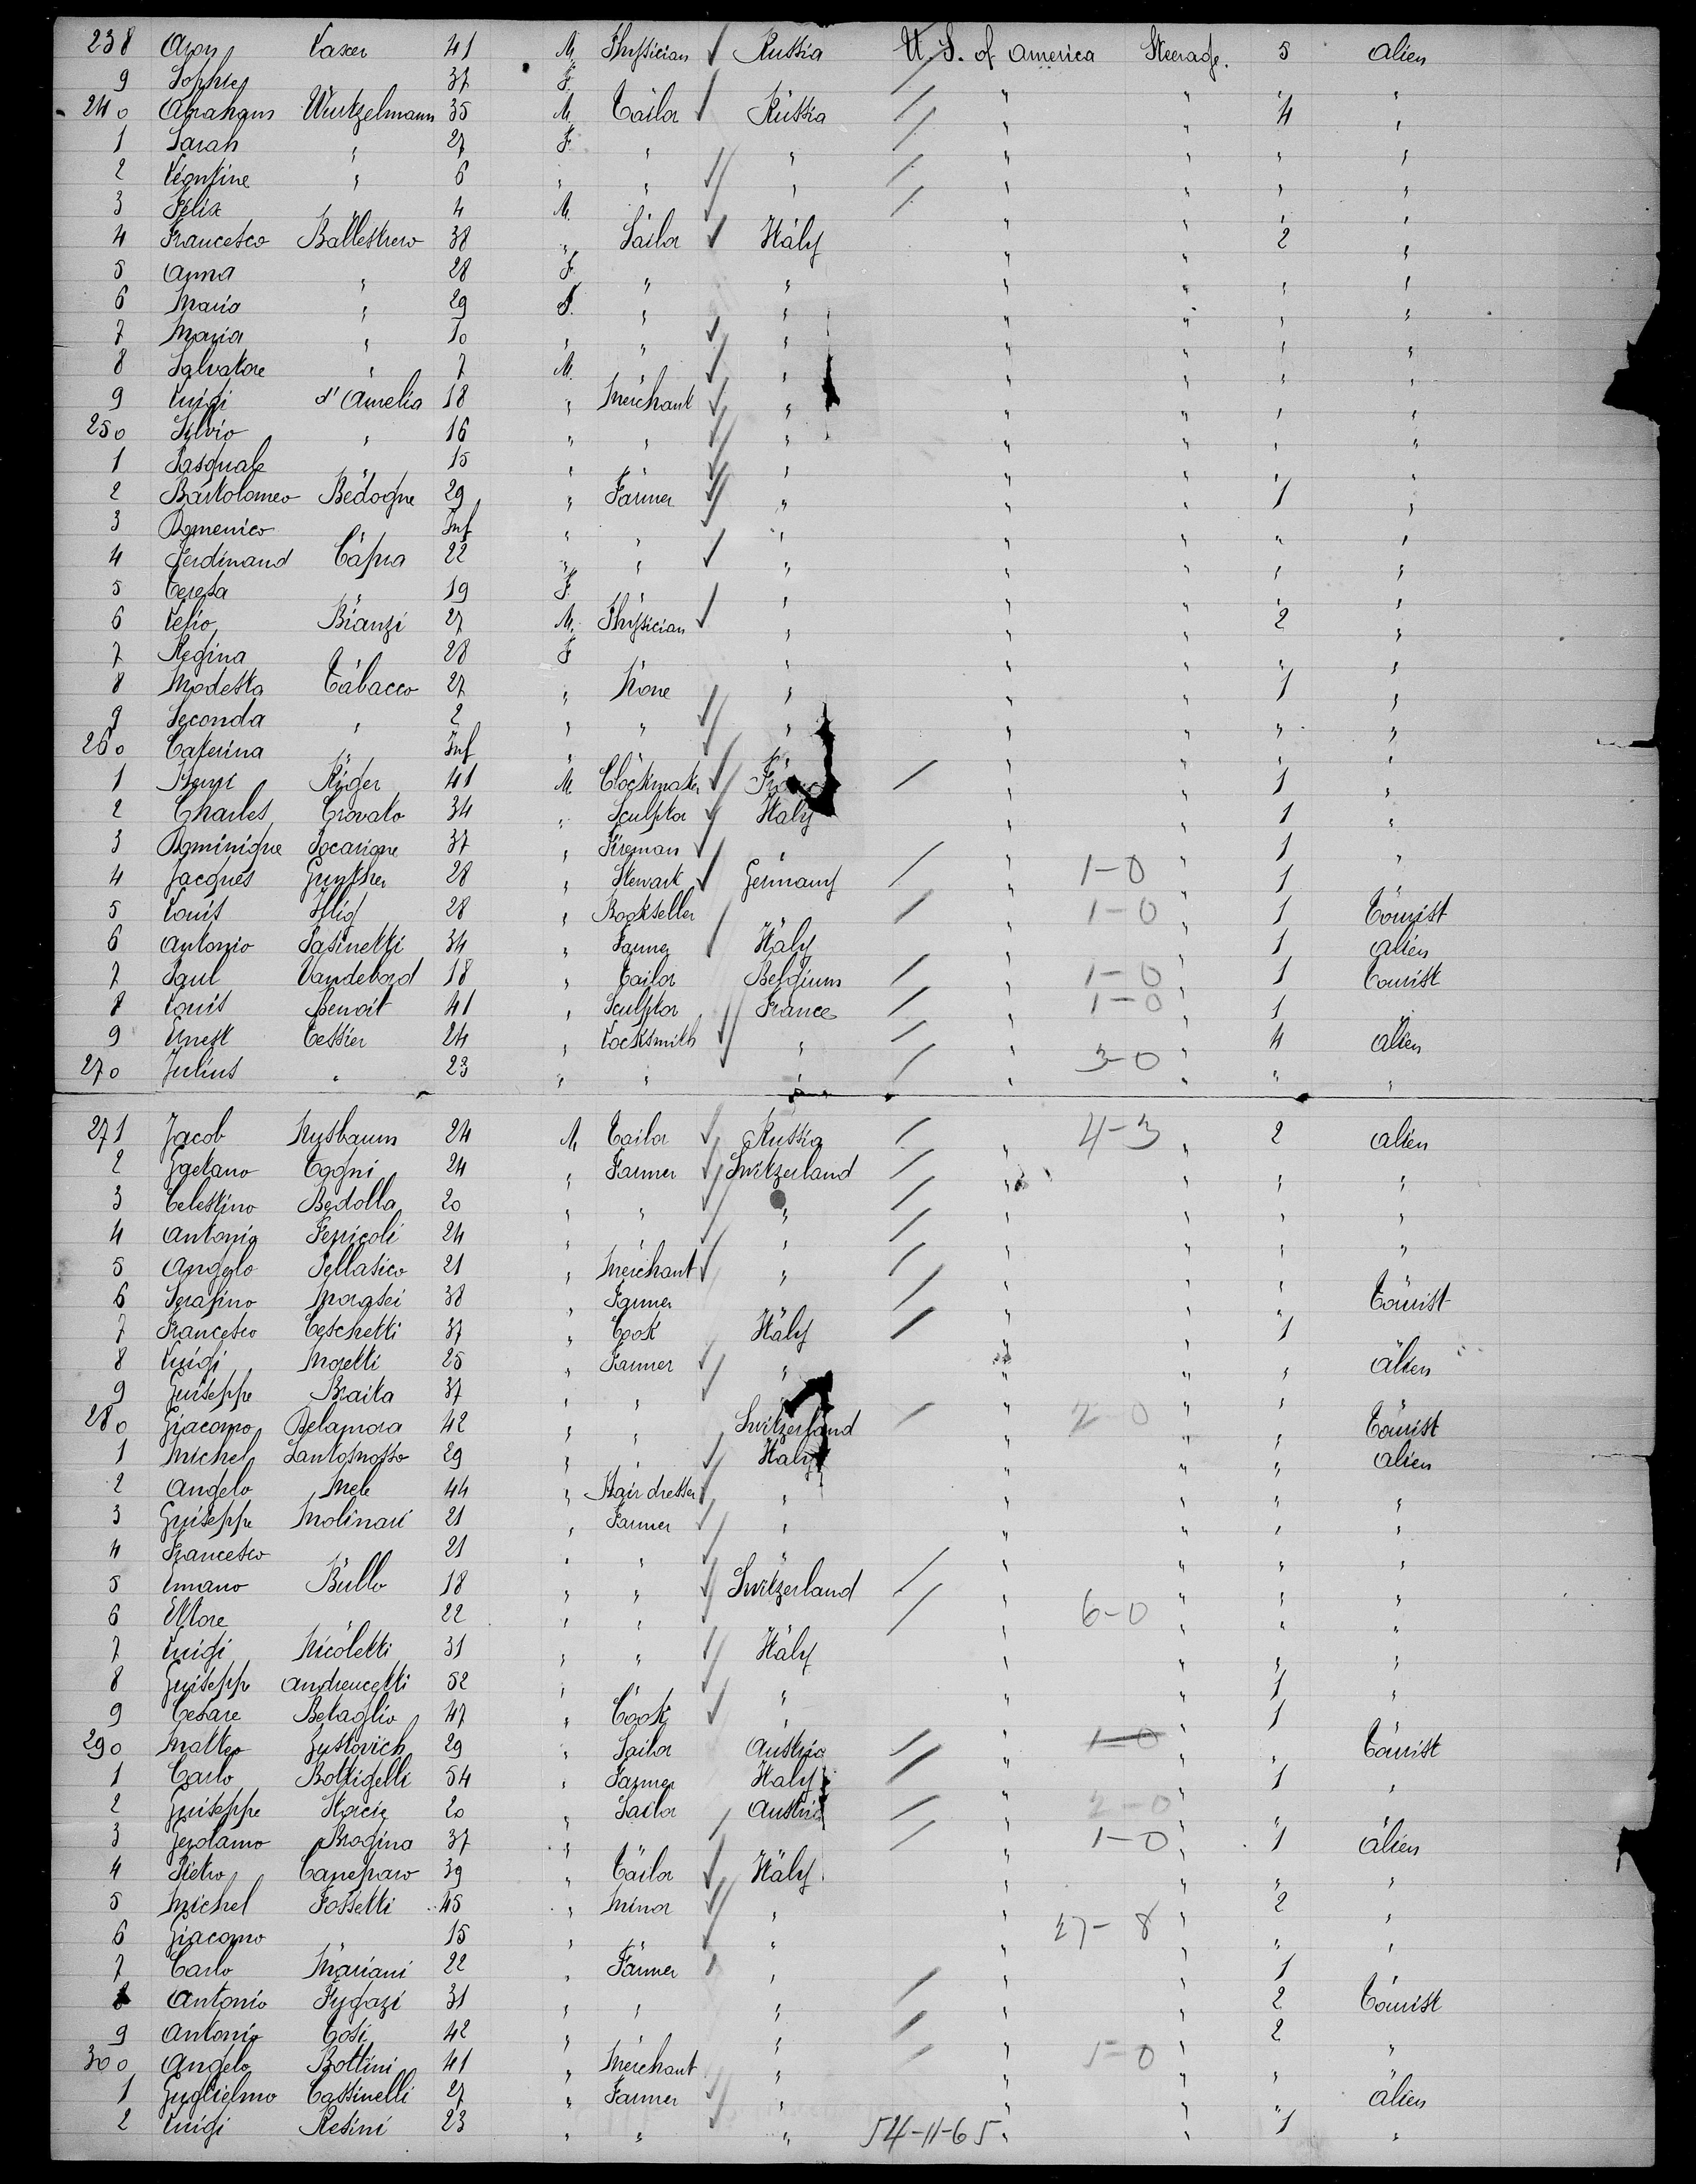 238 Aron Laser 41 M. Physician Russia U. S. of America Steerage. 5 Alien
9 Sophie " 37 F. " " " " " "
240 Abraham Wurtzelmann 35 M. Tailor Russia " " 4 "
1 Sarah " 27 F. " " " " " "
2 Leontine " 6 " " " " " " "
3 Felix " 4 M. " " " " " "
4 Francesco Ballestrero 38 " Sailor Italy " " 2 "
5 Anna " 28 F. " " " " " "
6 Maria " 29 F. " " " " " "
7 Maria " 10 " " " " " " "
8 Salvatore " 7 M. " " " " " "
9 Luigi d'Amelia 18 " Merchant " " " " "
250 Silvio " 16 " " " " " " "
1 Pasquale " 15 " " " " " " "
2 Bartolomeo Bedogne 29 " Farmer " " " 1 "
3 Domenico " Inf " " " " " " "
4 Ferdinand Capra 22 " " " " " " "
5 Teresa " 19 F. " " " " " "
6 Lelio Bianzi 27 M. Physician " " " 2 "
7 Regina " 28 F " " " " " "
8 Modesta Tabacco 27 " None " " " 1 "
9 Seconda " 2 " " " " " " "
260 Caterina " Inf " " " " " " "
1 Henri Riger 41 M. Clockmaker France " " 1 "
2 Charles Crovato 34 " Sculptor Italy " " 1 "
3 Dominique Pocarione 37 " Fireman " " " 1 "
4 Jacques Gunther 28 " Stewart Germany " 1-0 " 1 "
5 Louis Illig 28 " Bookseller " " 1-0 " 1 Tourist
6 Antonio Pasinetti 34 " Farmer Italy " " 1 Alien
7 Paul Vandebord 18 " Tailor Belgium " 1-0 " 1 Tourist
8 Louis Benoit 41 " Sculptor France " 1-0 " 1 "
9 Ernest Tessier 24 " Locksmith " " " 4 Alien
270 Julius " 23 " " " " 3-0 " " "
271 Jacob Nusbaum 24 M. Tailor Russia " 4-3 " 2 Alien
2 Gaetano Togni 24 " Farmer Switzerland " " " "
3 Celestino Bedolla 20 " " " " " " "
4 Antonio Fenicoli 24 " " " " " " "
5 Angelo Pellasico 21 " Merchant " " " " "
6 Serafino Morasei 38 " Farmer " " " " Tourist
7 Francesco Ceschetti 37 " Cook Italy " " 1 "
8 Luigi Moretti 25 " Farmer " " " " Alien
9 Guiseppe Braita 37 " " " " " " "
280 Giacomo Delamora 42 " " Switzerland " 2-0 " " Tourist
1 Michel Santosnosso 29 " " Italy " " " Alien
2 Angelo Mele 44 " Hairdresser " " " " "
3 Guiseppe Molinari 21 " Farmer " " " " "
4 Francesco " 21 " " " " " " "
5 Emano Bullo 18 " " Switzerland " " " "
6 Ettore " 22 " " " " 6-0 " " "
7 Luigi Nicoletti 31 " " Italy " " " "
8 Guiseppe Andreucetti 52 " " " " " 1 "
9 Cesare Betaglio 47 " Cook " " " 1 "
290 Matteo Zustovich 29 " Sailor Austria " 1-0 " " Tourist
1 Carlo Bottigelli 54 " Farmer Italy " " 1 "
2 Guiseppe 20 " Sailor Austria " 2-0 " " "
3 Gerolamo Brogina 37 " " " " 1-0 " 1 Alien
4 Pietro Caneparo 39 " Tailor Italy " " " "
5 Michel Fossetti 45 " Minor " " " 2 "
6 Giacomo " 15 " " " " 27-8 " " "
7 Carlo Mariani 22 " Farmer " " " 1 "
8 Antonio Fugazi 31 " " " " " 2 Tourist
9 Antonio Tosi 42 " " " " " 2 "
300 Angelo Bottini 41 " Merchant " " 5-0 " " "
1 Guglielmo Cassinelli 27 " Farmer " " " " Alien
2 Luigi Resini 23 " " " 54-11-65 " " 1 "